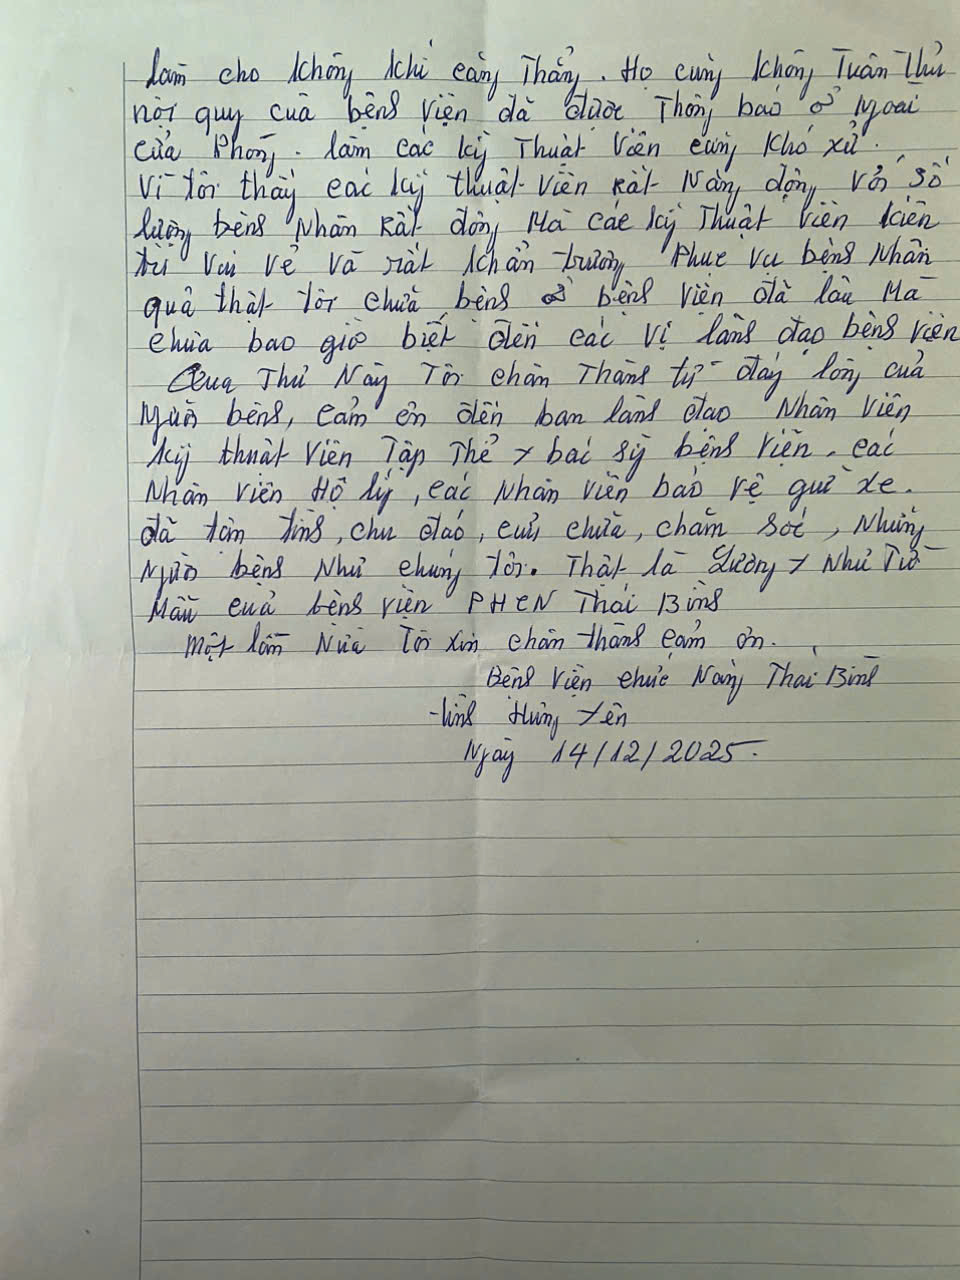 làm cho không khí căng thẳng. Họ cũng không Tuân Thủ
nội quy của bệnh viện đã được Thông báo ở ngoài
cửa Phòng. làm các kỹ Thuật Viên cũng khó xử.
Vì tôi thấy các kỹ thuật viên Rất Năng động, Với số
lượng bệnh Nhân Rất đông Mà các kỹ Thuật Viên kiên
trì Vui vẻ Và rất khẩn trương Phục vụ bệnh Nhân
quả thật tôi chữa bệnh ở bệnh viện đã lâu Mà
chưa bao giờ biết đến các vị lãnh đạo bệnh viện
Qua Thư Này Tôi chân Thành từ đáy lòng của
người bệnh, cảm ơn đến ban lãnh đạo Nhân Viên
kỹ thuật Viên Tập Thể Y bác sỹ bệnh viện. các
Nhân viên Hộ lý, các Nhân viên bảo vệ gửi xe.
đã tận tình, chu đáo, cứu chữa, chăm sóc, Những
Người bệnh Như chúng tôi. Thật là Lương Y Như Từ
Mẫu của bệnh viện PHCN Thái Bình
Một lần Nữa Tôi xin chân thành cảm ơn.
Bệnh Viện chức Năng Thái Bình
tỉnh Hưng Yên
Ngày 14/12/2025.